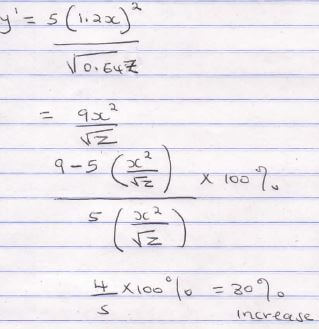 y' = 5(1.2x)² / √0.64z
= 9x² / √z
9 - 5 (x² / √z) / 5 (x² / √z) × 100%
4/5 × 100% = 80% increase